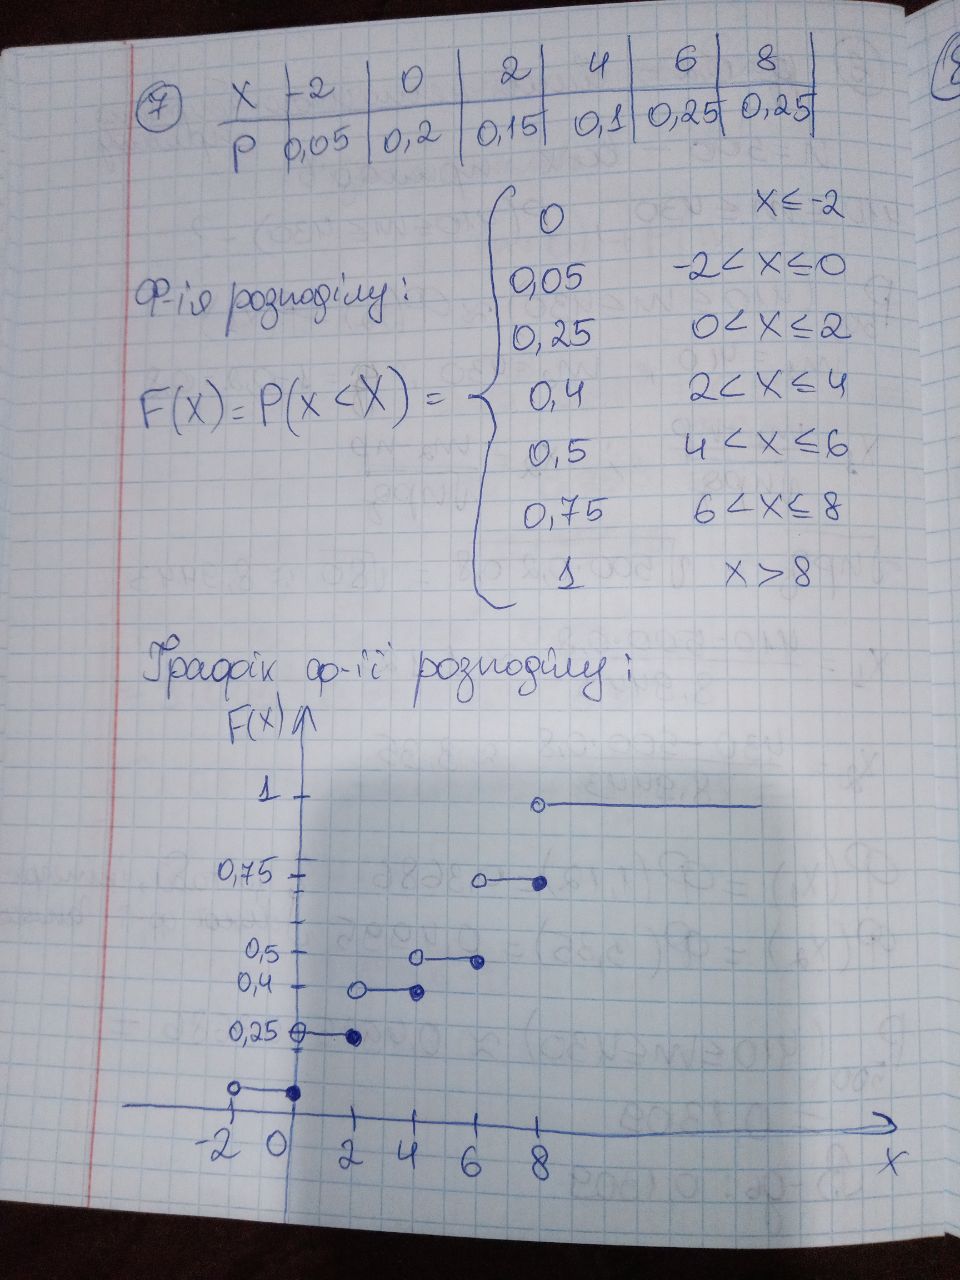 7 X -2 0 2 4 6 8
P 0,05 0,2 0,15 0,1 0,25 0,25
0 x ≤ -2
Ф-ія розподілу: 0,05 -2 < x ≤ 0
0,25 0 < x ≤ 2
F(X) = P(x < X) = 0,4 2 < x ≤ 4
0,5 4 < x ≤ 6
0,75 6 < x ≤ 8
1 x > 8
Графік ф-ії розподілу:
F(X)
1
0,75
0,5
0,4
0,25
-2 0 2 4 6 8 x